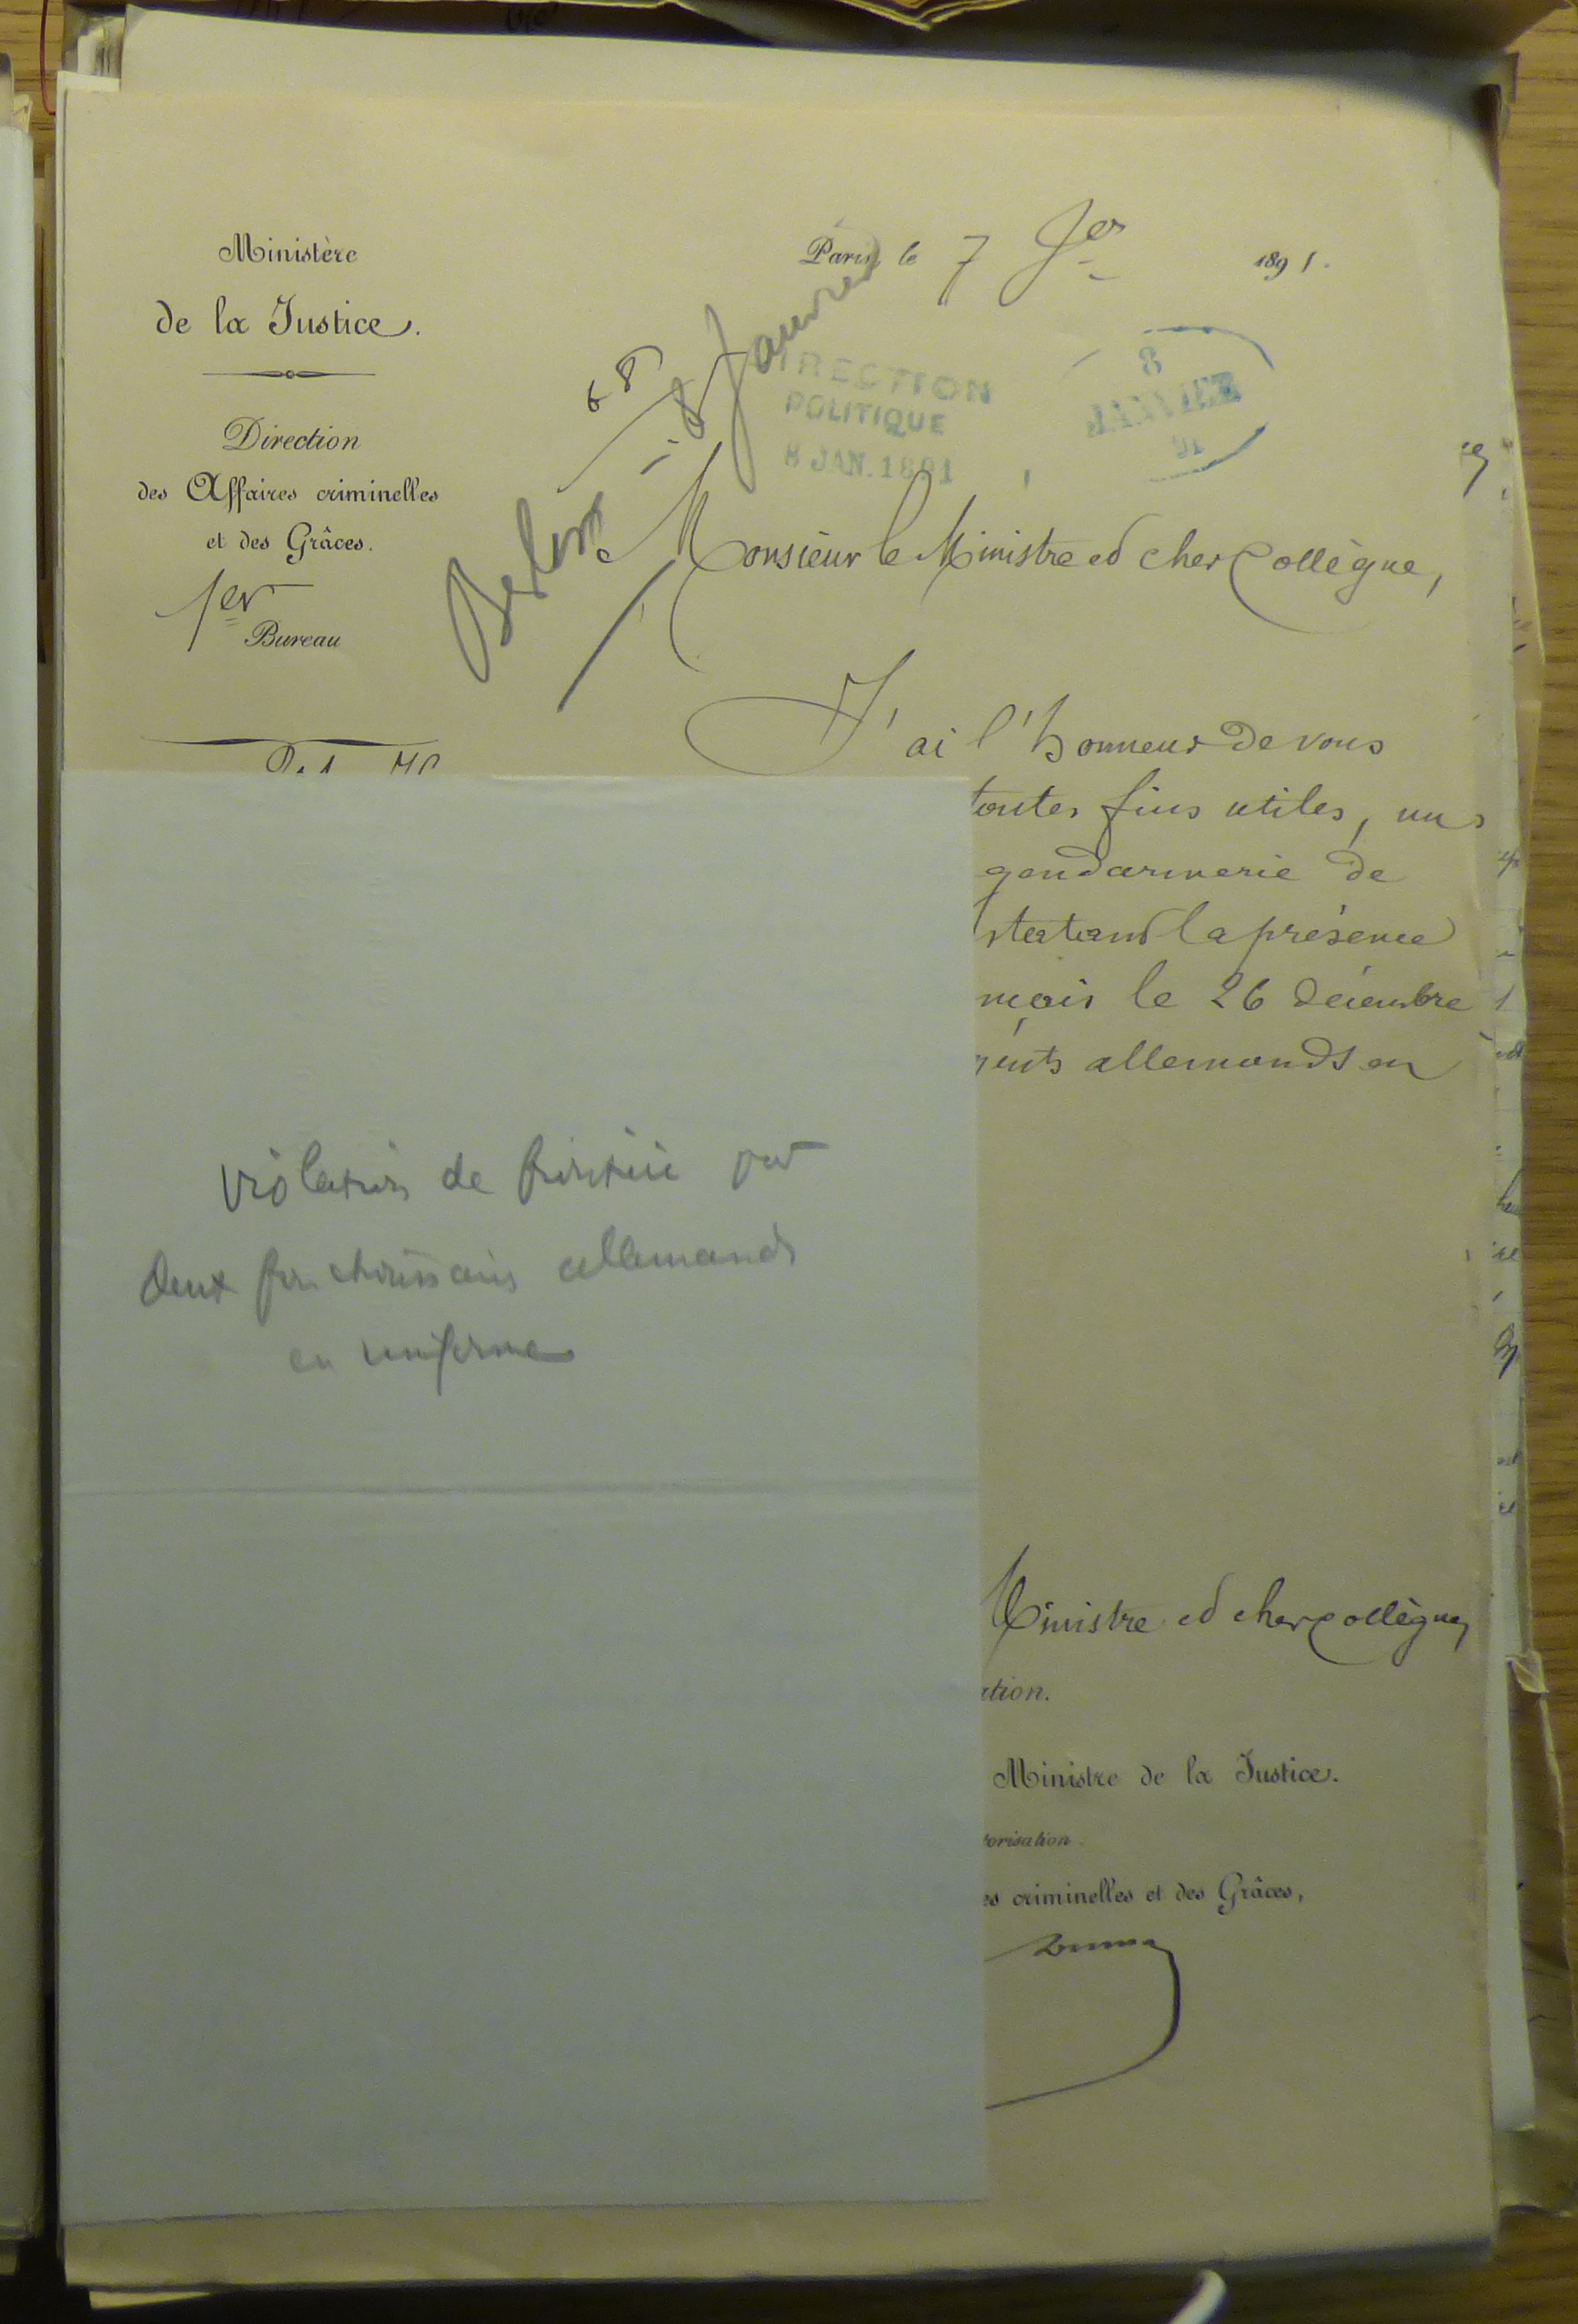 Ministère
de la Justice.
Direction
des Affaires criminelles
et des Grâces.
1er
Bureau
Paris le 7 Jer 1891.
68
Berlin
8 Janvier
DIRECTION
POLITIQUE
8 JAN. 1891
8
JANVIER
91
Monsieur le Ministre et cher Collègue,
J'ai l'honneur de vous
toutes fins utiles, un
gendarmerie de
statant la présence
mois le 26 décembre
gents allemands en
violation de frontière par
deux fonctionnaires allemands
en uniforme
Ministre et cher Collègue,
ation.
Ministre de la Justice.
torisation.
es criminelles et des Grâces,